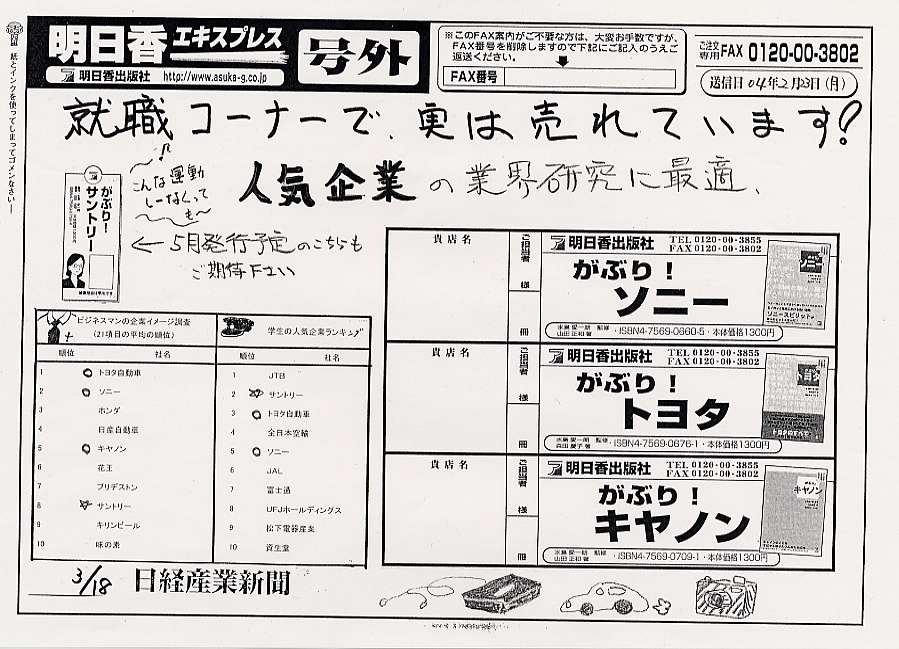 紙とインクを使ってしまってゴメンなさい―
明日香エキスプレス
明日香出版社 http://www.asuka-g.co.jp
号外
※このFAX案内がご不要な方は、大変お手数ですが、
FAX番号を削除しますので下記にご記入のうえご
返送ください。
FAX番号
ご注文専用 FAX 0120-00-3802
送信日 04年2月23日(月)
就職コーナーで、実は売れています!
人気企業の業界研究に最適、
こんな運動
しーなくって
も~
がぶり!
サントリー
←5月発行予定のこちらも
ご期待下さい
ビジネスマンの企業イメージ調査
(21項目の平均の順位)
順位 社名
1 トヨタ自動車
2 ソニー
3 ホンダ
4 日産自動車
5 キヤノン
6 花王
7 ブリヂストン
8 サントリー
9 キリンビール
10 味の素
学生の人気企業ランキング
順位 社名
1 JTB
2 サントリー
3 トヨタ自動車
4 全日本空輸
5 ソニー
6 JAL
7 富士通
8 UFJホールディングス
9 松下電器産業
10 資生堂
3/18 日経産業新聞
貴店名
ご担当者
様
冊
明日香出版社 TEL 0120-00-3855
FAX 0120-00-3802
がぶり!
ソニー
水島愛一朗 監修
山田正和 著
・ISBN4-7569-0660-5・本体価格1300円
ソニー
ソニースピリット
貴店名
ご担当者
様
冊
明日香出版社 TEL 0120-00-3855
FAX 0120-00-3802
がぶり!
トヨタ
水島愛一朗 監修
・ISBN4-7569-0676-1・本体価格1300円
トヨタ
貴店名
ご担当者
様
冊
明日香出版社 TEL 0120-00-3855
FAX 0120-00-3802
がぶり!
キヤノン
水島愛一朗 監修
山田正和 著
・ISBN4-7569-0709-1・本体価格1300円
キヤノン